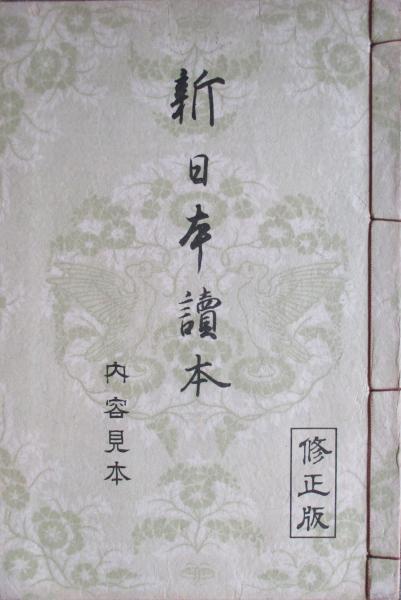 修正版
新日本讀本
内容見本